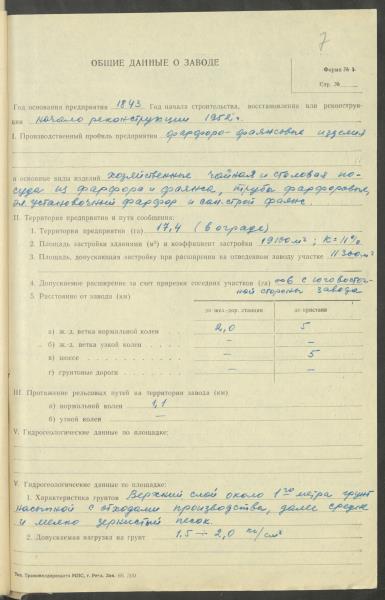 7
ОБЩИЕ ДАННЫЕ О ЗАВОДЕ
Форма №
Стр. №
Год основания предприятия 1843 Год начала строительства, восстановления или реконструк-
ции начало реконструкции 1952 г.
I. Производственный профиль предприятия фарфоро-фаянсовые изделия
и основные виды изделий хозяйственные чайная и столовая по-
суда из фарфора и фаянса, трубы фарфоровые,
эл. установочный фарфор и сан. строй фаянс.
II. Территория предприятия и пути сообщения:
1. Территория предприятия (га) 17,4 (в ограде)
2. Площадь застройки зданиями (м²) и коэффициент застройки 19130 м²; К=11%
3. Площадь, допускающая застройку при расширении на отведенном заводу участке 11300 м²
4. Допускаемое расширение за счет прирезки соседних участков (га) с юговосточ-
ной стороны завода
5. Расстояние от завода (км)
до жел.-дор. станции
до пристани
а) ж.-д. ветка нормальной колеи 2,0 5
б) ж.-д. ветка узкой колеи – –
в) шоссе – 5
г) грунтовые дороги – –
III. Протяжение рельсовых путей на территории завода (км)
а) нормальной колеи 1,1
б) узкой колеи –
V. Гидрогеологические данные по площадке:
V. Гидрогеологические данные по площадке:
1. Характеристика грунтов Верхний слой около 1го метра грунт
насыпной с отходами производства, далее средне
и мелко зернистый песок.
2. Допускаемая нагрузка на грунт 1,5 ÷ 2,0 кг/см²